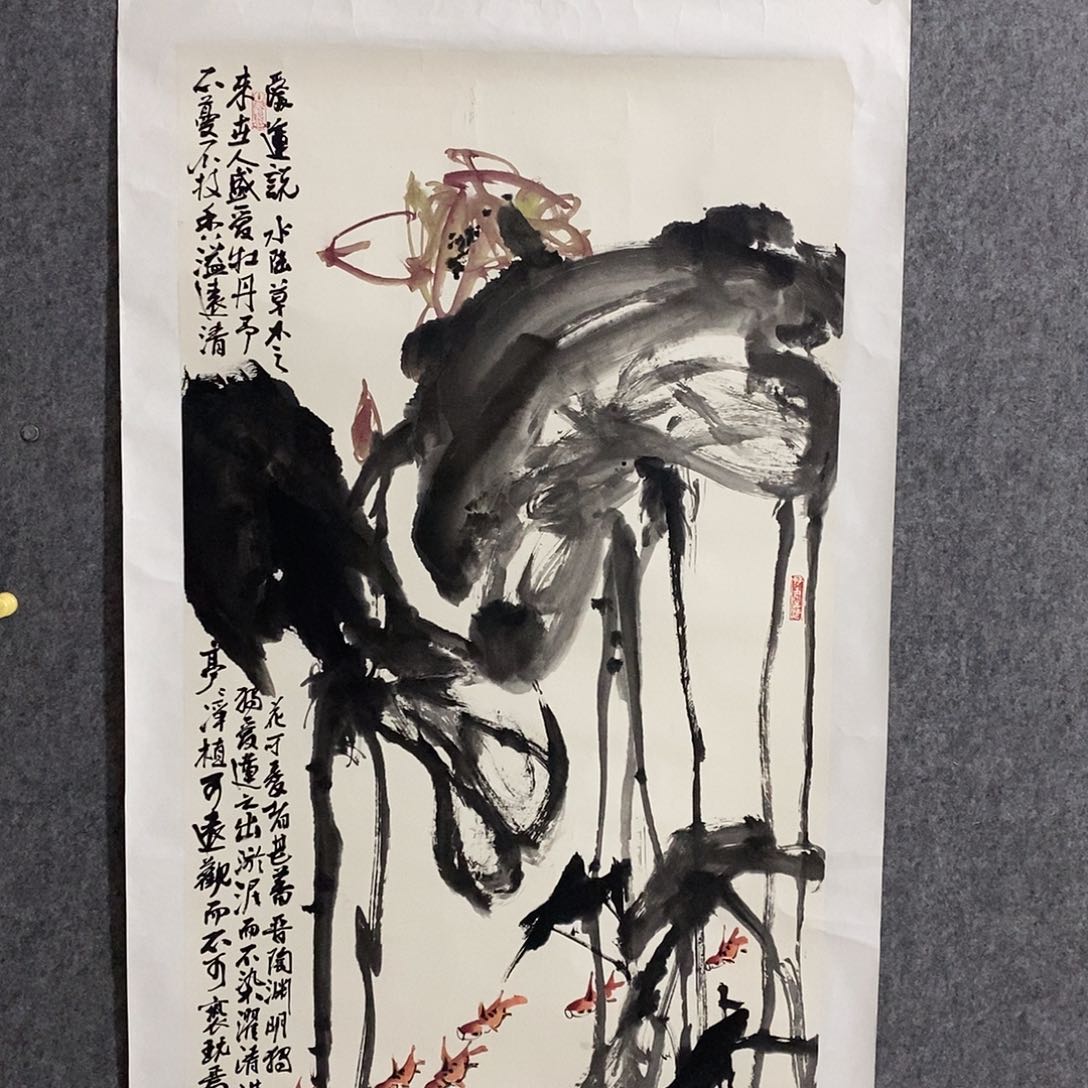 愛蓮説 水陸草木之
花可愛者甚蕃晋陶淵明獨
來世人盛愛牡丹予
獨愛蓮之出淤泥而不染濯清
不蔓不枝香溢遠清
亭々淨植可遠觀而不可褻玩焉